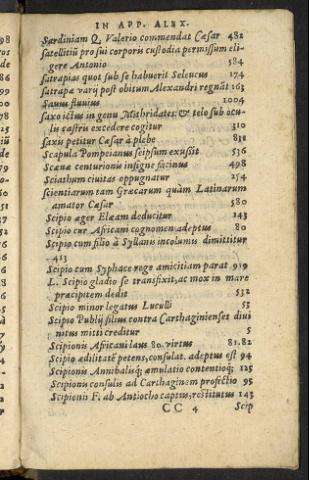 IN APP. ALEX.
Sardiniam Q. Valerio commendat Cæsar 482
satellitiũ pro sui corporis custodia permissum eli-
gere Antonio 584
satrapias quot sub se habuerit Seleucus 174
satrapæ varij post obitum Alexandri regnãt 163
Sauus fluuius 1004
saxo ictus in genu Mithridates: & telo sub ocu-
lu castris excedere cogitur 310
saxis petitur Cæsar à plebe 831
Scapula Pompeianus seipsum exussit 536
Scæuæ centurionis insigne facinus 498
Sciathum ciuitas oppugnatur 254
scientiarum tam Græcarum quàm Latinarum
amator Cæsar 580
Scipio æger Elæam deducitur 143
Scipio cur Africani cognomen adeptus 80
Scipio cum filio à Syllanis incolumis dimittitur
413
Scipio cum Syphace rege amicitiam parat 919
L. Scipio gladio se transfixit, ac mox in mare
præcipitem dedit 532
Scipio minor legatus Luculli 53
Scipio Publij filius contra Carthaginienses diui
nitus mitti creditur 5
Scipionis Africani laus 80. virtus 81.82
Scipio ædilitatẽ petens, consulat. adeptus est 94
Scipionis Annibalisq; æmulatio contentioq; 125
Scipionis consulis ad Carthaginem profectio 95
Scipionis F. ab Antiocho captus, restitutus 143
CC 4 Scip